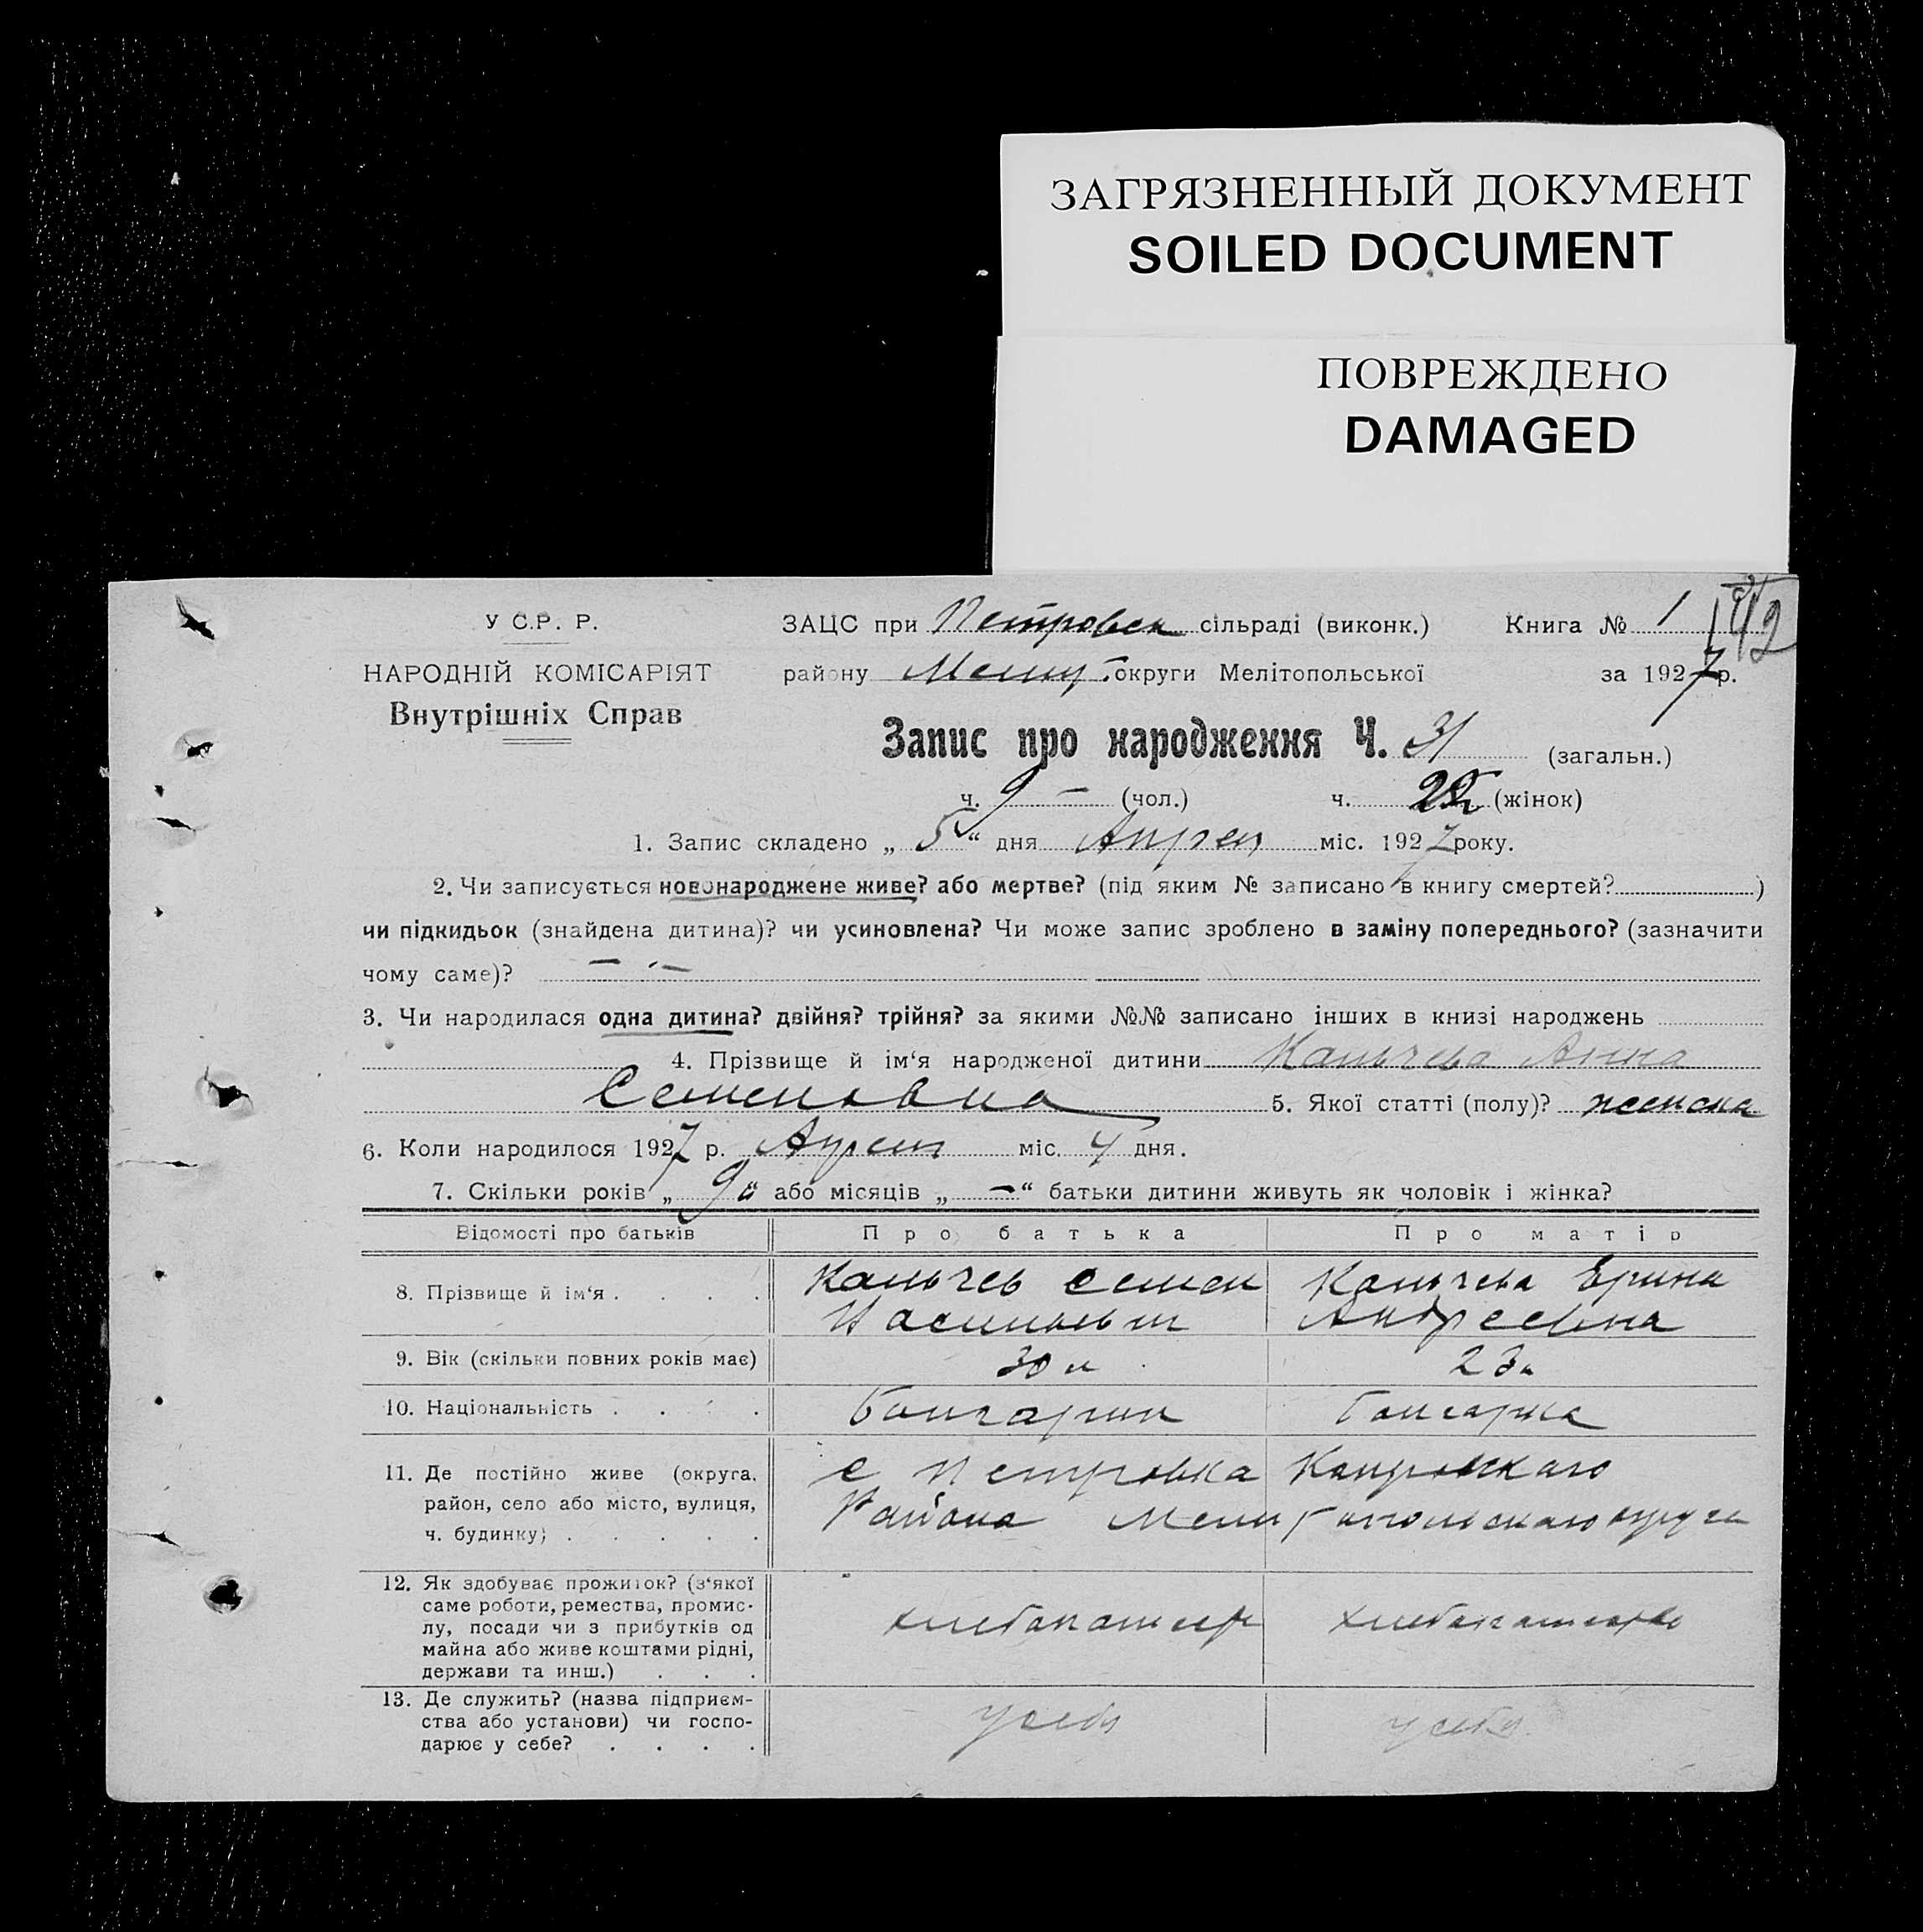 ЗАГРЯЗНЕННЫЙ ДОКУМЕНТ
SOILED DOCUMENT
ПОВРЕЖДЕНО
DAMAGED
У С.Р. Р.
НАРОДНІЙ КОМІСАРІЯТ
Внутрішніх Справ
ЗАЦС при Петровск сільраді (виконк.) Книга № 1
району округи Мелітопольської за 1927 р.
Запис про народження Ч. 31 (загальн.)
ч. 9 — (чол.) ч. (жінок)
1. Запис складено „ 5 “ дня Апрел міс. 1927 року.
2. Чи записується новонароджене живе? або мертве? (під яким № записано в книгу смертей? )
чи підкидьок (знайдена дитина)? чи усиновлена? Чи може запис зроблено в заміну попереднього? (зазначити
чому саме)? — . —
3. Чи народилася одна дитина? двійня? трійня? за якими №№ записано інших в книзі народжень
4. Прізвище й ім‘я народженої дитини Капьчева Анна
Семеновна 5. Якої статті (полу)? женска
6. Коли народилося 1927 р. Апрел міс. 4 дня.
7. Скільки років „ 9 “ або місяців „ — “ батьки дитини живуть як чоловік і жінка?
Відомості про батьків Про батька Про матір
8. Прізвище й ім‘я . . . . Капьчев Семен Капьчева Ерина
Андреевна
9. Вік (скільки повних років має) 30 л 23 л
10. Національність . . . . Болгарин Болгарка
11. Де постійно живе (округа, с Петровка
район, село або місто, вулиця, Района Мелитопольскаго округа
ч. будинку) . . . . .
12. Як здобуває прожиток? (з‘якої
саме роботи, ремества, промис-
лу, посади чи з прибутків од хлебопашец
майна або живе коштами рідні,
держави та инш.) . . .
13. Де служить? (назва підприєм-
ства або установи) чи госпо- у себя у себя
дарює у себе? . . . .